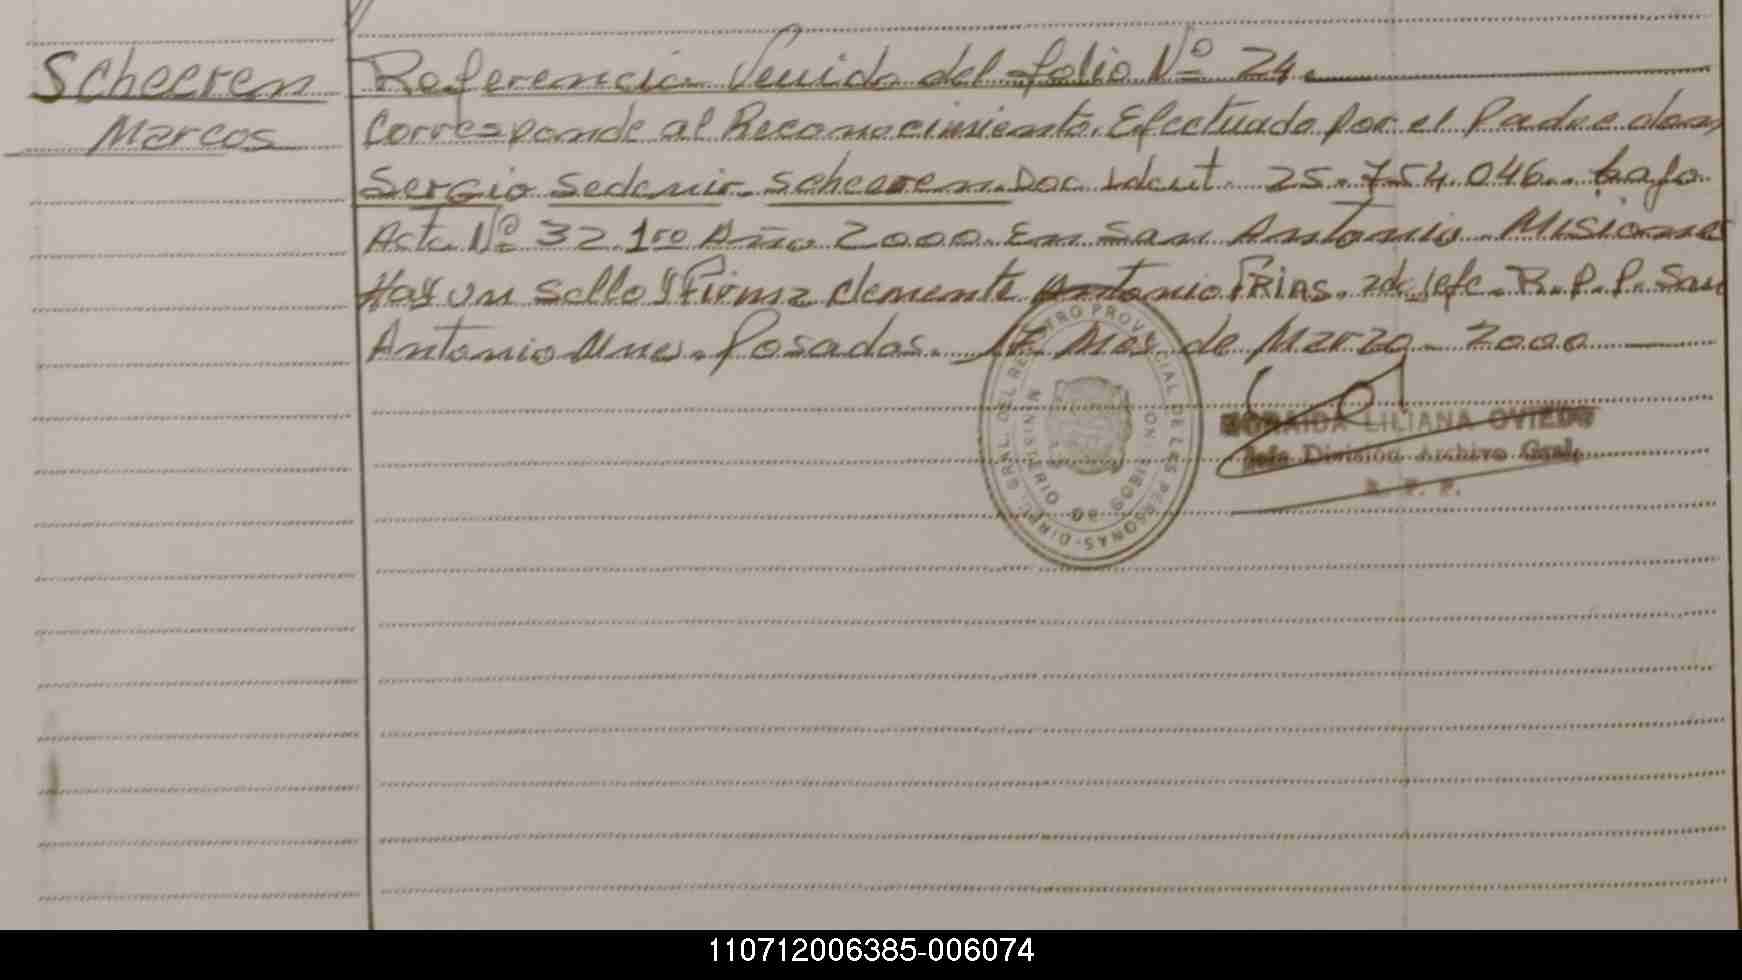 Scheeren
Marcos
Referencia Venida del folio Nº 24.
Corresponde al Reconocimiento. Efectuado por el Padre don
Sergio Sedenir Scheeren. Doc Ident. 25.754.046. bajo
Acta Nº 32 1ro Año 2000. En San Antonio Misiones
Hay un Sello y Firma clemente Antonio Frias. 2do Jefe. R.P.P. San
Antonio Mnes. Posadas. 17 Mes de Marzo 2000
DIREC. GRAL. DEL REGISTRO PROVINCIAL DE LAS PERSONAS
MINISTERIO DE GOBIERNO
ZORAIDA LILIANA OVIEDO
Jefa División Archivo Gral.
R. P. P.
110712006385-006074